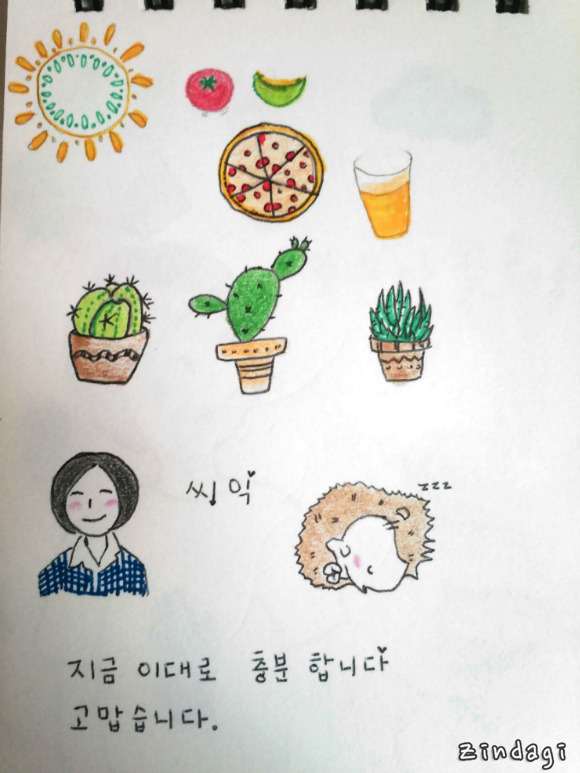 씨익
zzz
지금 이대로 충분 합니다
고맙습니다.
Zindagi